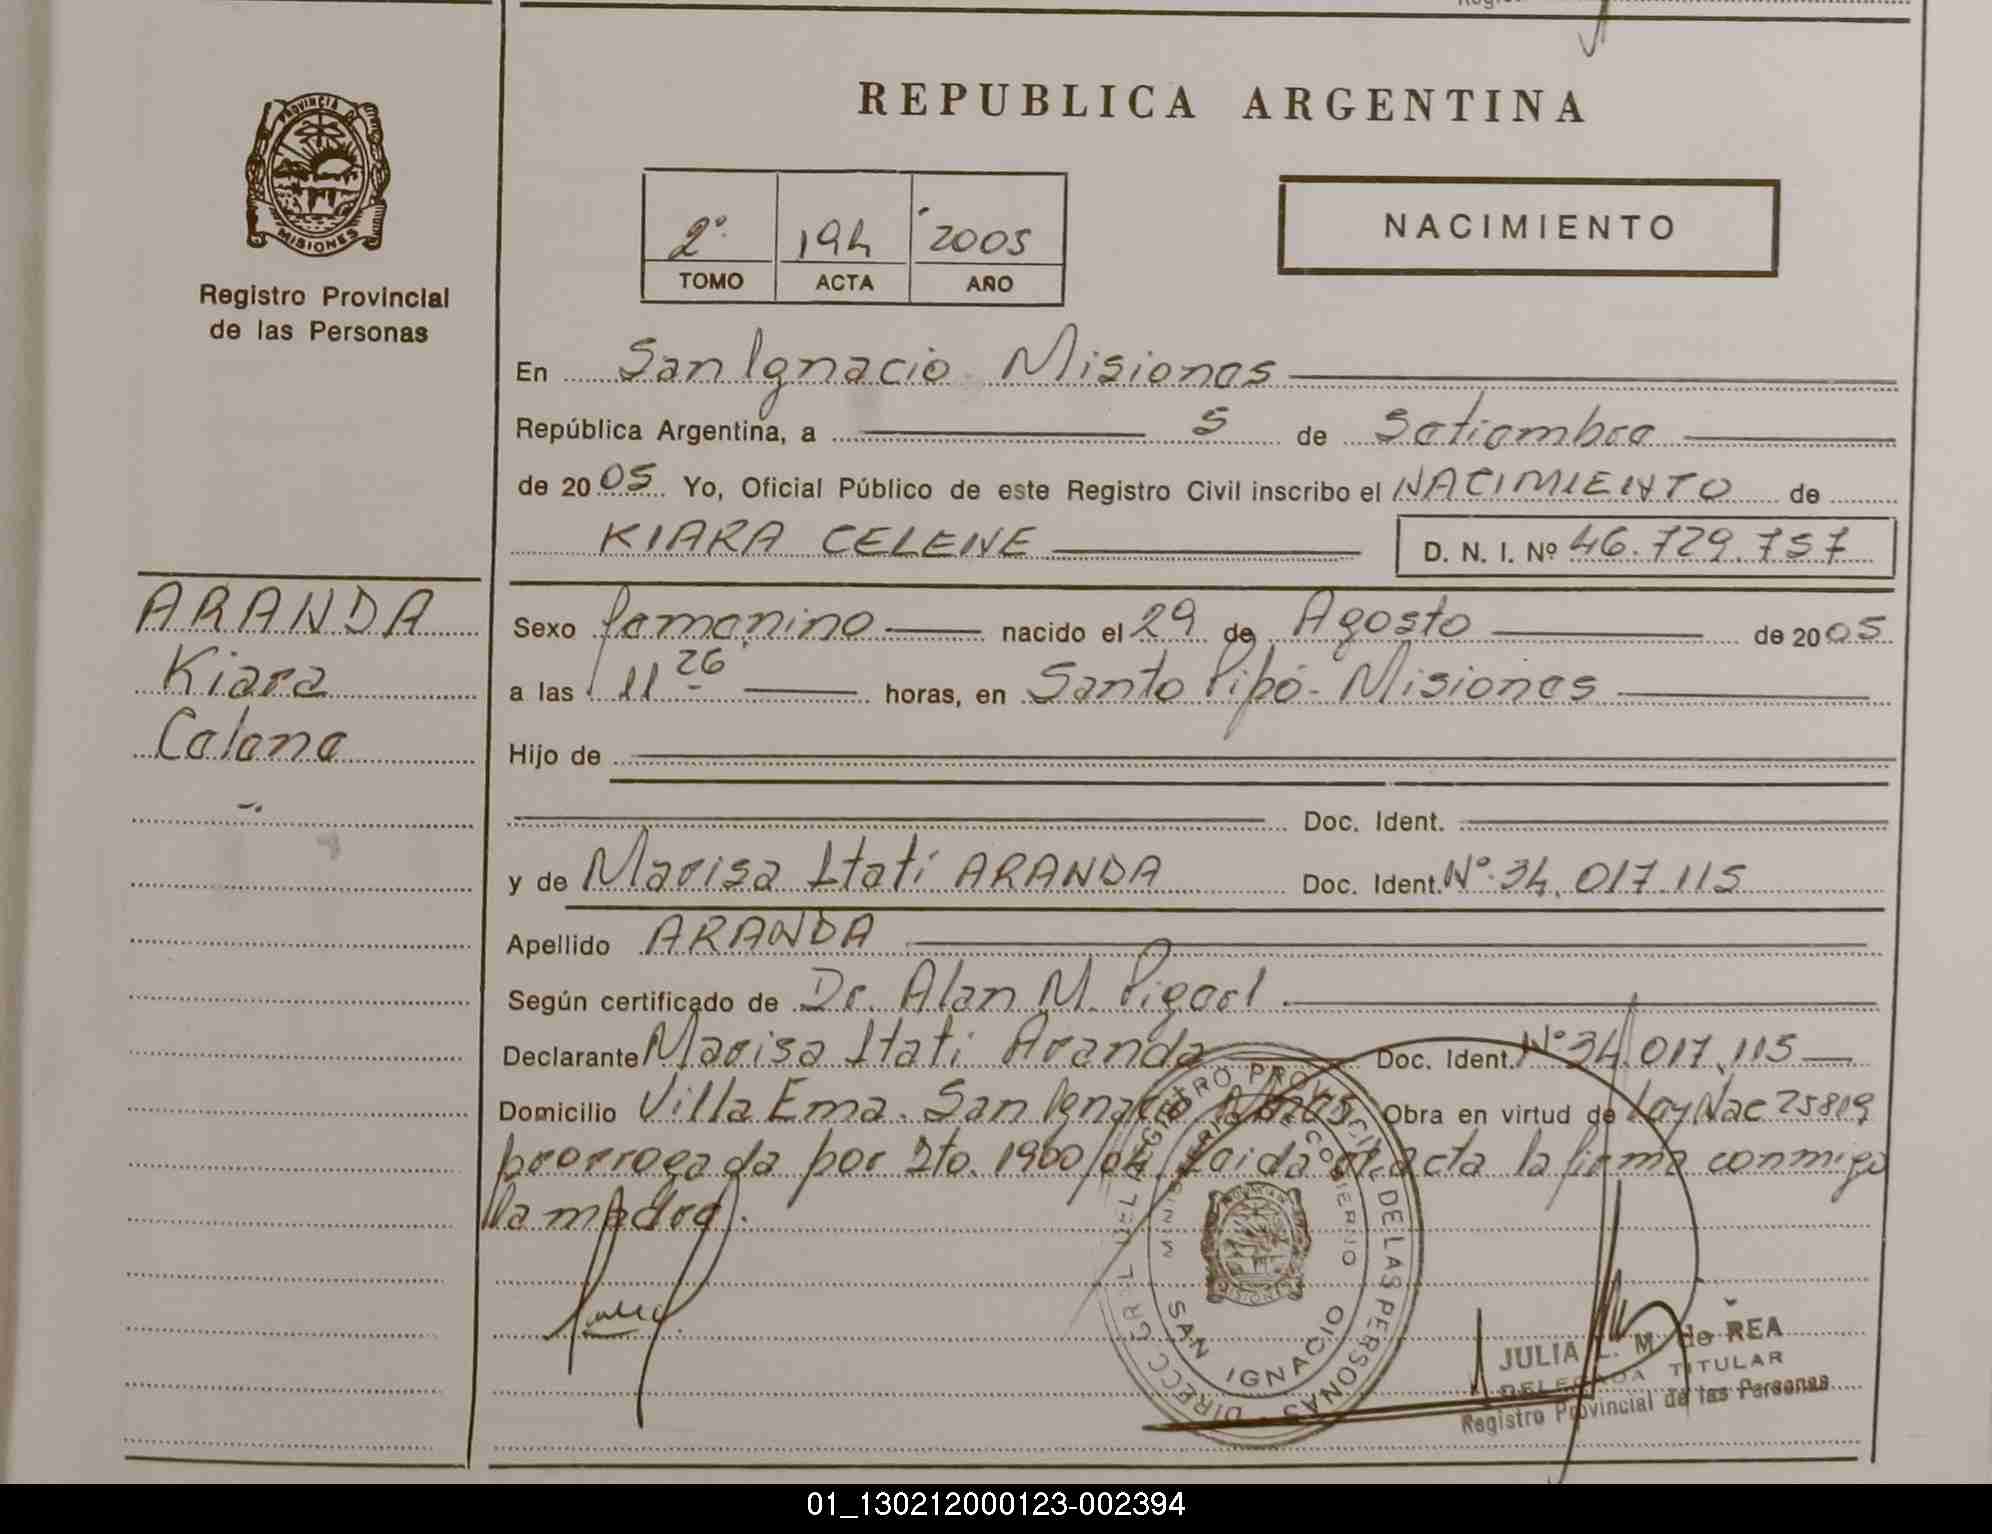 REPUBLICA ARGENTINA
PROVINCIA DE
MISIONES
Registro Provincial
de las Personas
2º 194 2005
TOMO ACTA AÑO
NACIMIENTO
En San Ignacio Misiones
República Argentina, a 5 de Setiembre
de 2005 Yo, Oficial Público de este Registro Civil inscribo el NACIMIENTO de
KIARA CELENE D. N. I. Nº 46.729.757
ARANDA
Kiara
Celene
Sexo femenino nacido el 29 de Agosto de 2005
a las 11 26 horas, en Santo Pipó - Misiones
Hijo de
Doc. Ident.
y de Marisa Itatí ARANDA Doc. Ident. Nº 34.017.115
Apellido ARANDA
Según certificado de Dr. Alan M.
Declarante Marisa Itatí Aranda Doc. Ident. Nº 34.017.115
Domicilio Villa Ema. San Ignacio Mnes. Obra en virtud de Ley Nac 25819
prorrogada por Dto. 1900/04 Leida el acta la firma conmigo
la madre.
DIRECC. GRAL. DEL REGISTRO PROVINCIAL DE LAS PERSONAS
MINISTERIO DE GOBIERNO
MISIONES
SAN IGNACIO
JULIA L. M. de REA
DELEGADA TITULAR
Registro Provincial de las Personas
01_130212000123-002394